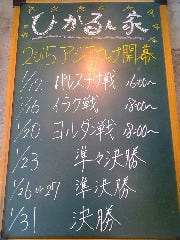 ひかるん家
2015アジアカップ開幕
1/12 パレスチナ戦 16:00〜
1/16 イラク戦 18:00〜
1/20 ヨルダン戦 18:00〜
1/23 準々決勝
1/26・27 準決勝
1/31 決勝